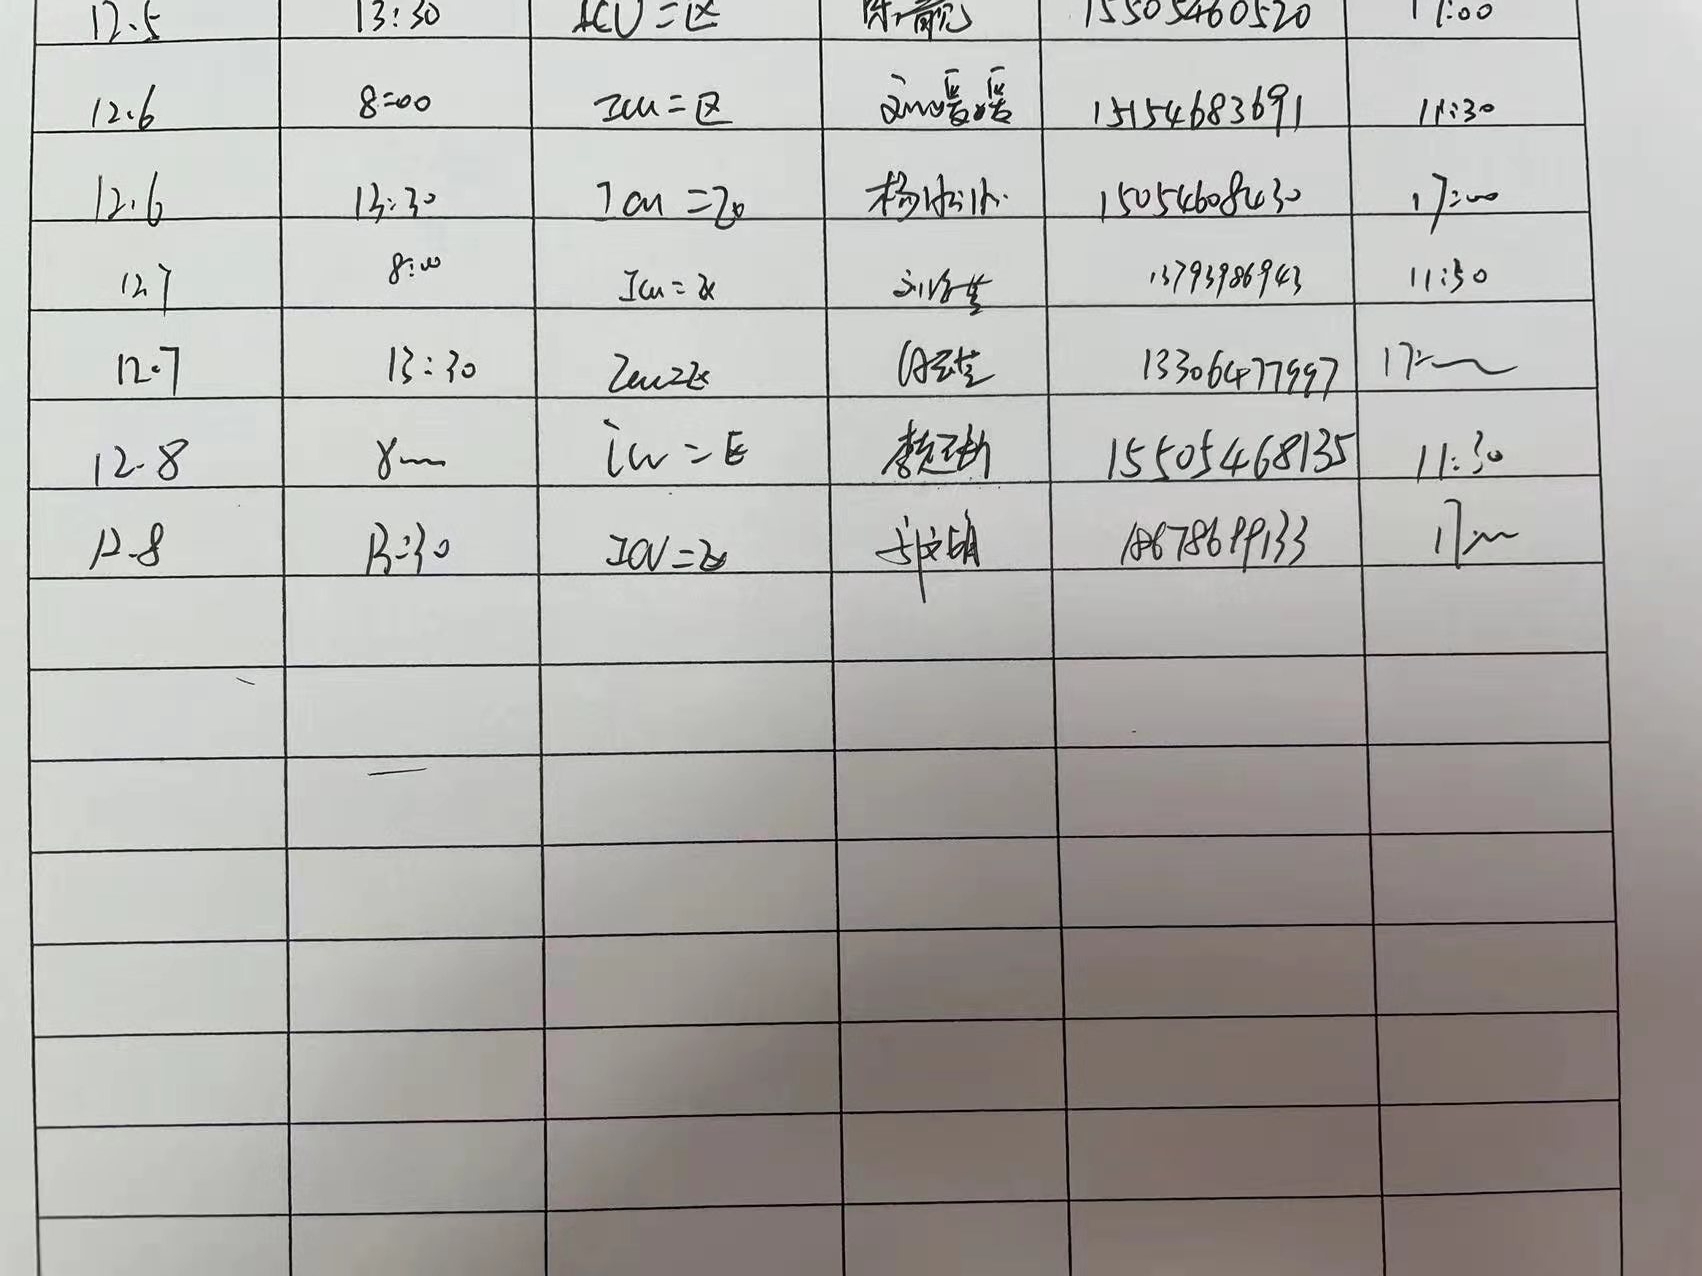 12.5 13:30 ICU二区 15505460520 17:00
12.6 8:00 ICU二区 15154683691 11:30
12.6 13:30 ICU二区 杨 15054608430 17:00
12.7 8:00 ICU二区 刘 13793986943 11:30
12.7 13:30 ICU二区 13306477997 17:00
12.8 8:00 ICU二区 李 15505468135 11:30
12.8 13:30 ICU二区 18678699133 17:00